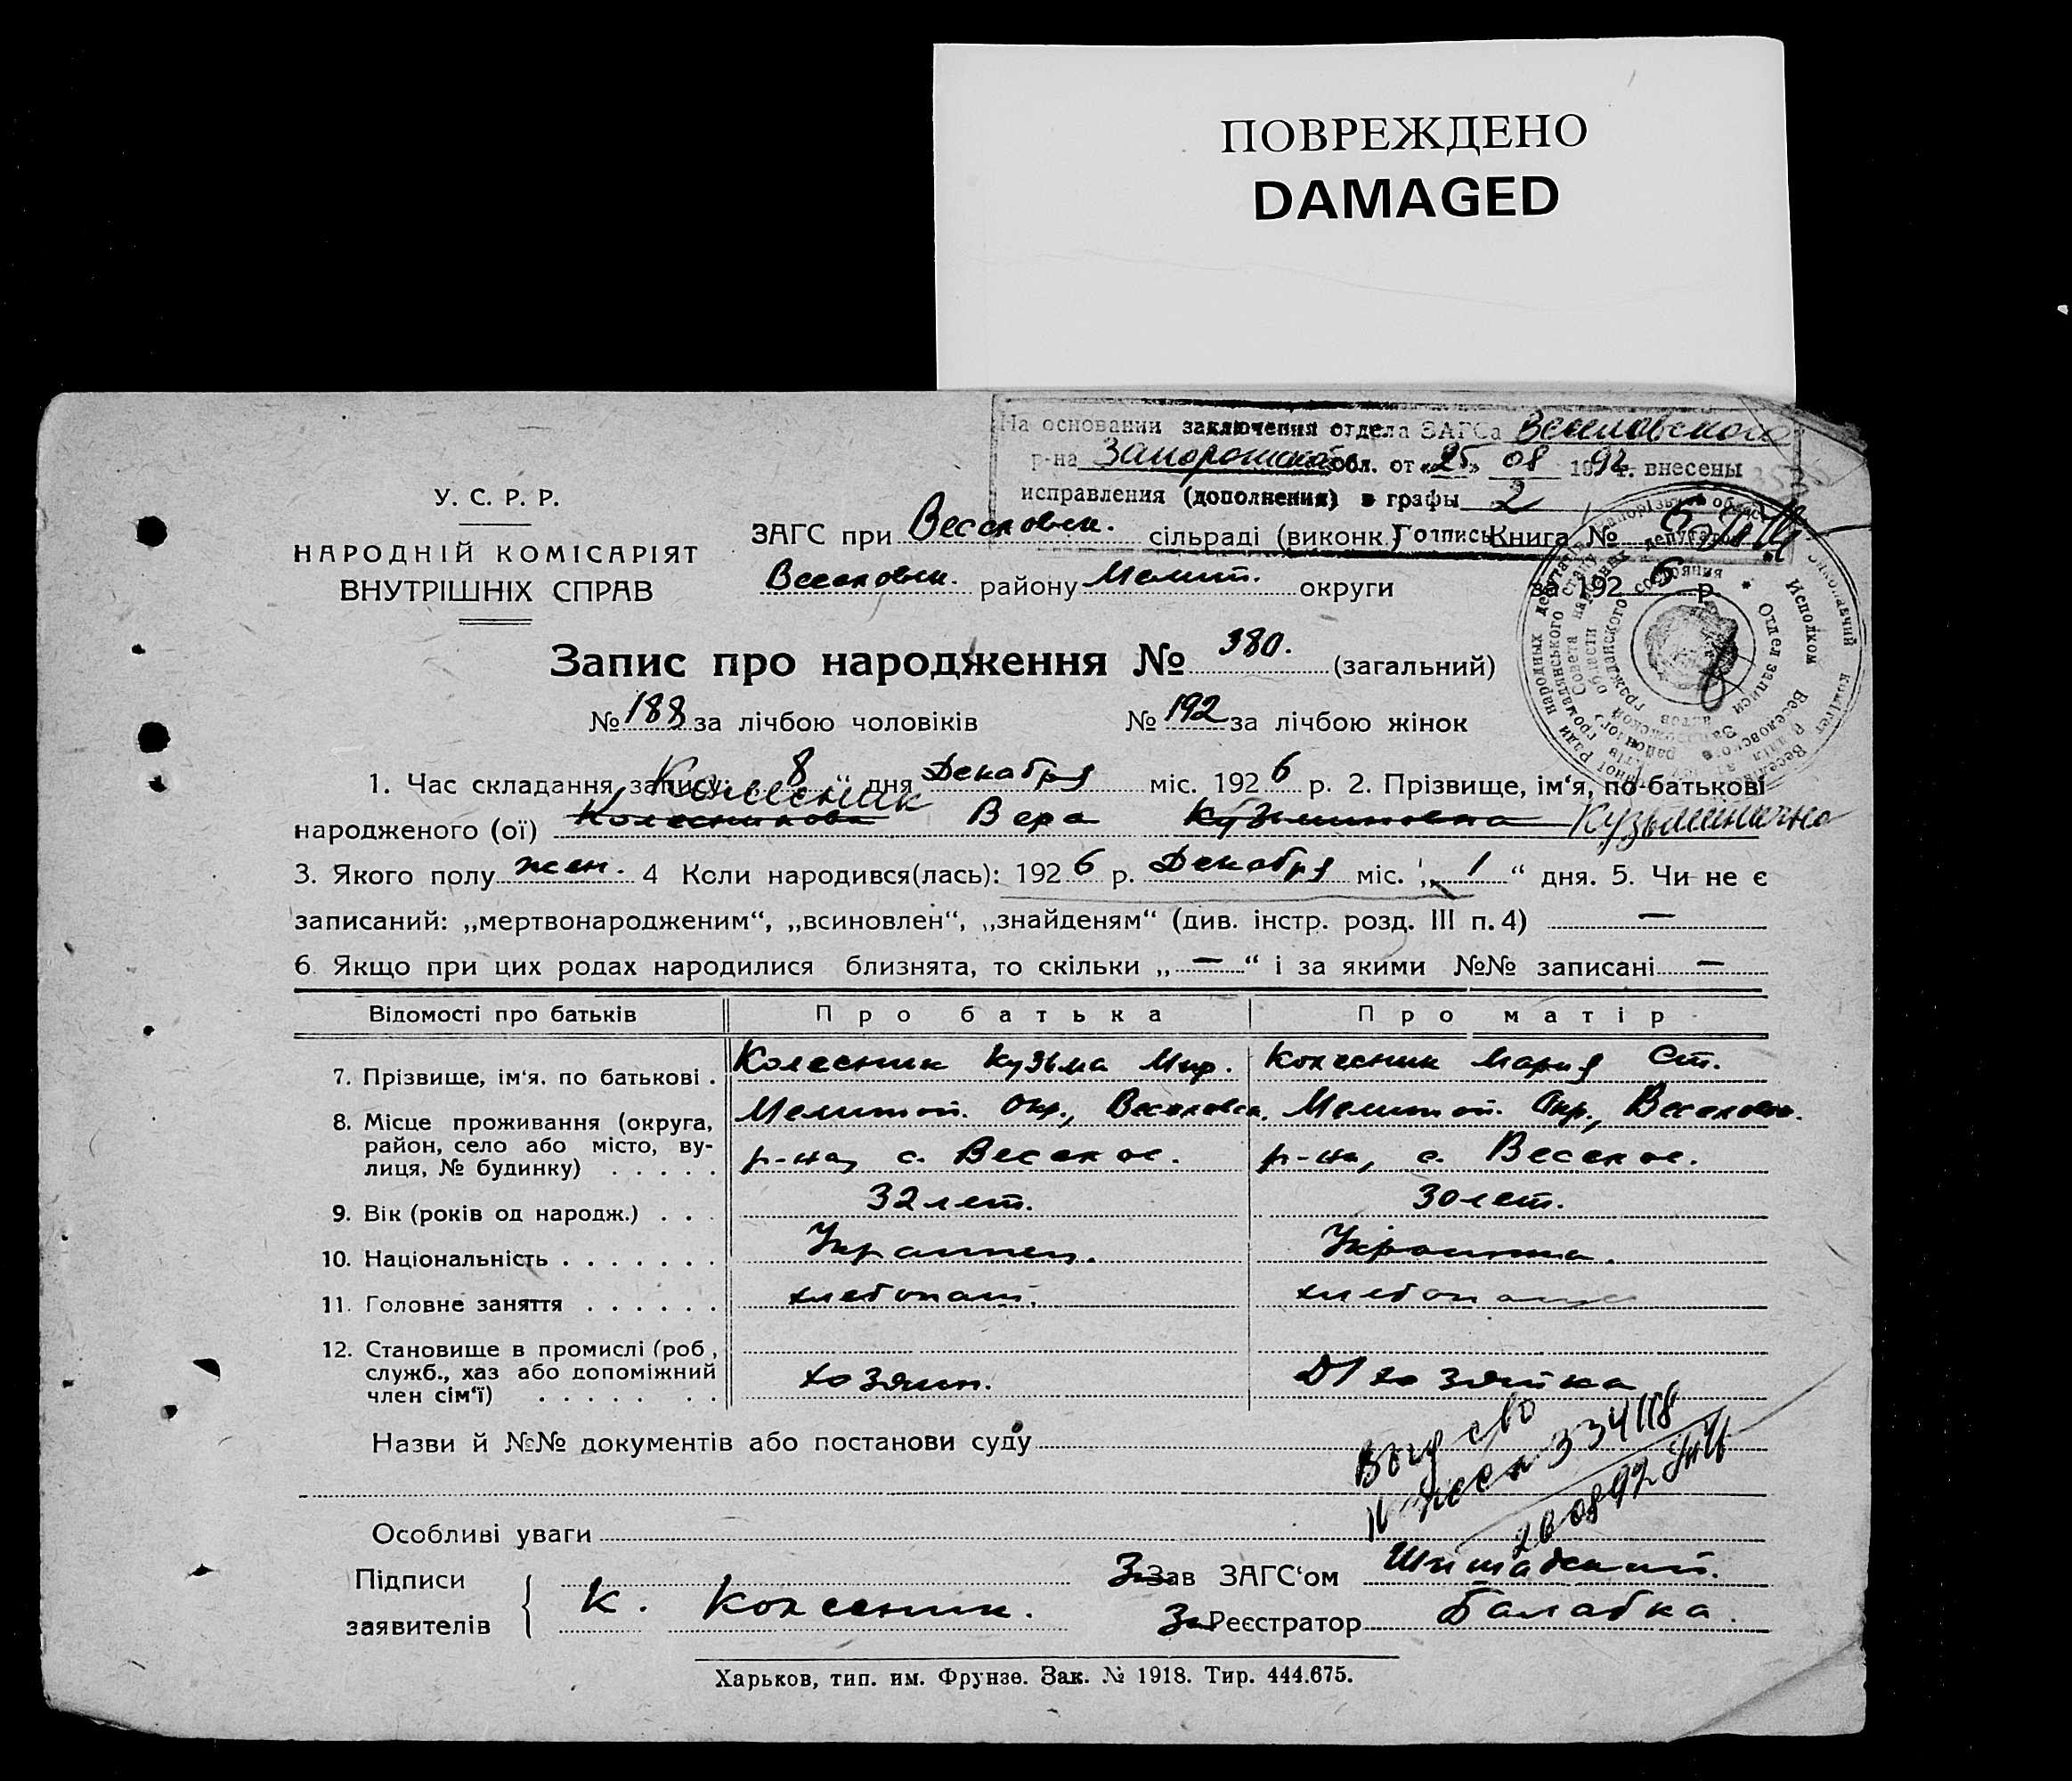 ПОВРЕЖДЕНО
DAMAGED
На основании заключения отдела ЗАГСа Веселовского
р-на Запорожской обл. от «25» 08 1992г. внесены
исправления (дополнения) в графы 2
Подпись
У. С. Р. Р.
НАРОДНІЙ КОМІСАРІЯТ
ВНУТРІШНІХ СПРАВ
ЗАГС при Веселовск. сільраді (виконк.) Книга №
Веселовск. району Мелит. округи за 1926 р.
Запис про народження № 380. (загальний)
№ 188 за лічбою чоловіків № 192 за лічбою жінок
1. Час складання запису: „8“ дня Декабря міс. 1926 р. 2. Прізвище, ім‘я, по-батькові
Колесник
народженого (ої) Колесникова Вера Кузьминовна Кузьминична
3. Якого полу жен. 4 Коли народився(лась): 1926 р. Декабря міс. „1“ дня. 5. Чи не є
записаний: „мертвонародженим“, „всиновлен“, „знайденям“ (див. інстр. розд. III п. 4) —
6. Якщо при цих родах народилися близнята, то скільки „—“ і за якими №№ записані —
Відомості про батьків Про батька Про матір
7. Прізвище, ім‘я. по батькові . Колесник Кузьма Мир. Колесник Мария Ст.
8. Місце проживання (округа, Мелитоп. Окр., Веселовск. Мелитоп. Окр., Веселовск.
район, село або місто, ву-
лиця, № будинку) . . . . . р-на, с. Веселое. р-на, с. Веселое.
9. Вік (років од народж.) . . . 32 лет. 30 лет.
10. Національність . . . . . . . Украинец. Украинка.
11. Головне заняття . . . . . . хлебопаш. хлебопашес
12. Становище в промислі (роб.,
служб., хаз або допоміжний
член сім‘ї) . . . . . . . хозяин. Д/хозяйка
Назви й №№ документів або постанови суду
Выд св-во
334118
26 08 92
Особливі уваги
Підписи
заявителів К. Колесник.
Зав ЗАГС‘ом
Реєстратор Балабка.
Харьков, тип. им. Фрунзе. Зак. № 1918. Тир. 444.675.